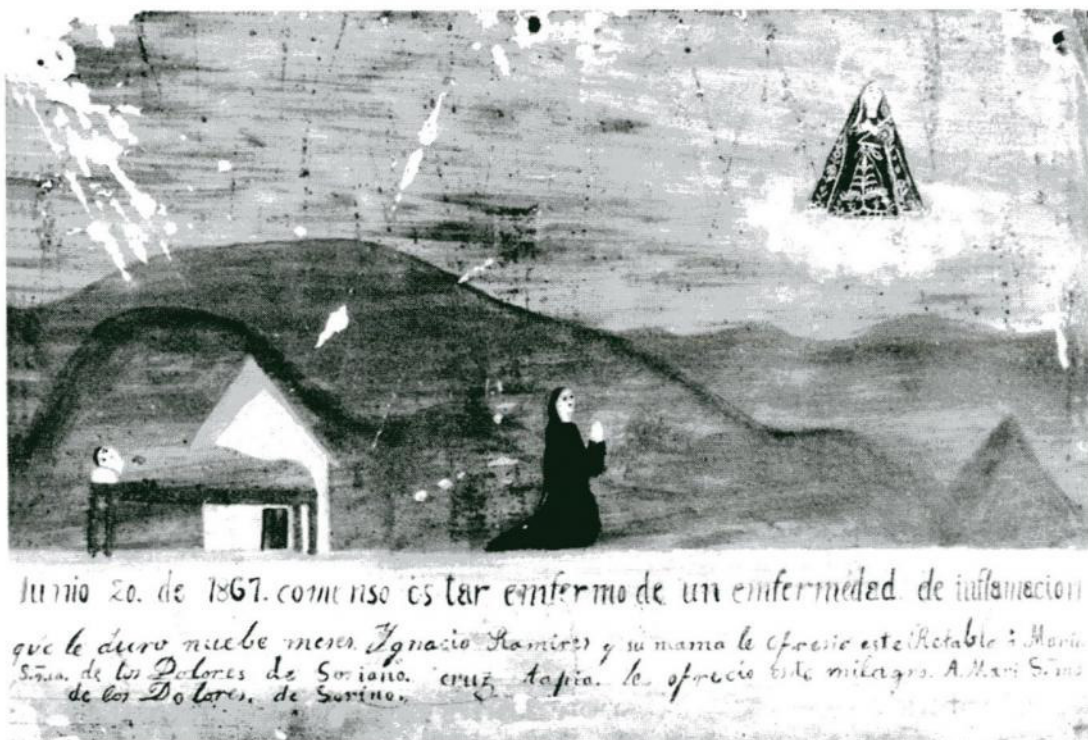 Junio 20. de 1867. comenso es tar emfermo de un emfermedad de inflamacion
que le duro nuebe meses. Ygnacio Ramires y su mama le ofresio este Retablo á Maria
S.ma. de los Dolores de Soriano. cruz tapia. le ofrecio este milagro. A. Mari S.ma
de los Dolores. de Sorino.